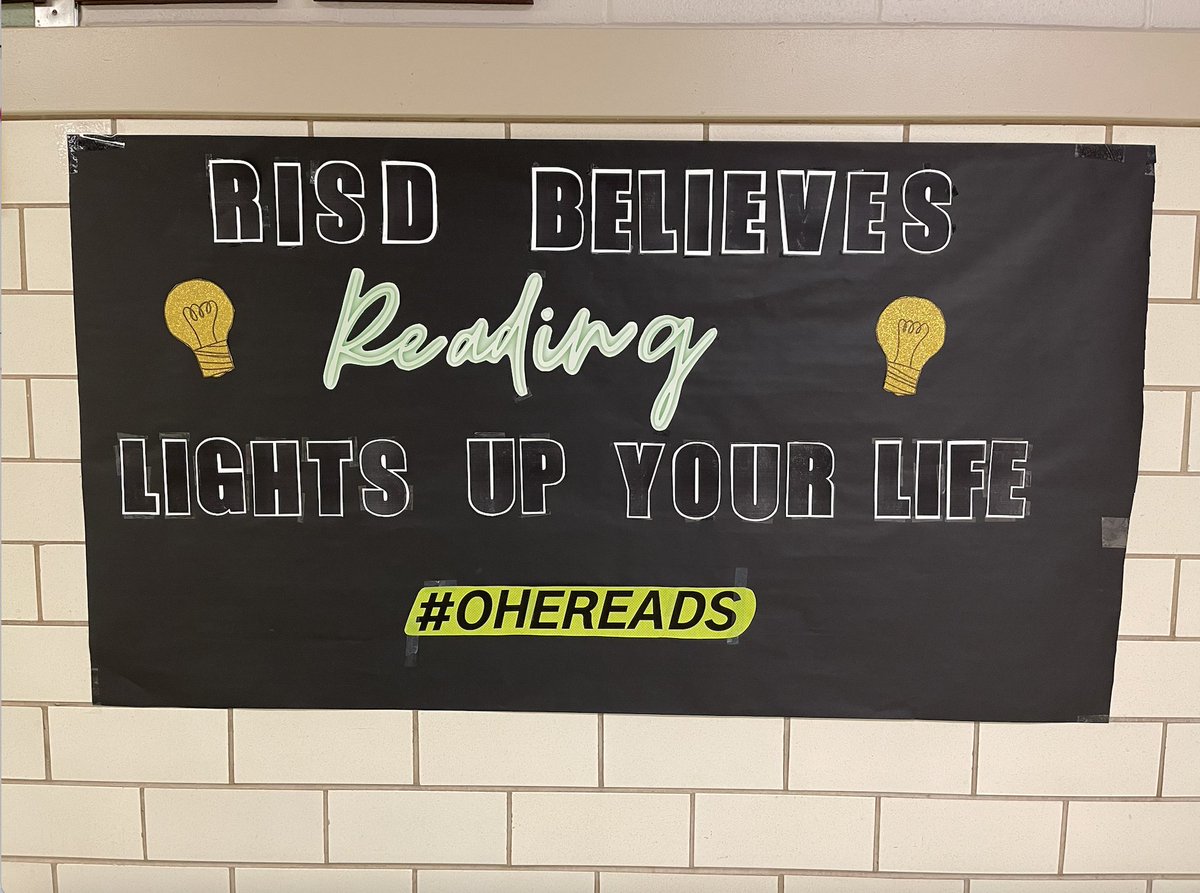 RISD BELIEVES
Reading
LIGHTS UP YOUR LIFE
#OHEREADS